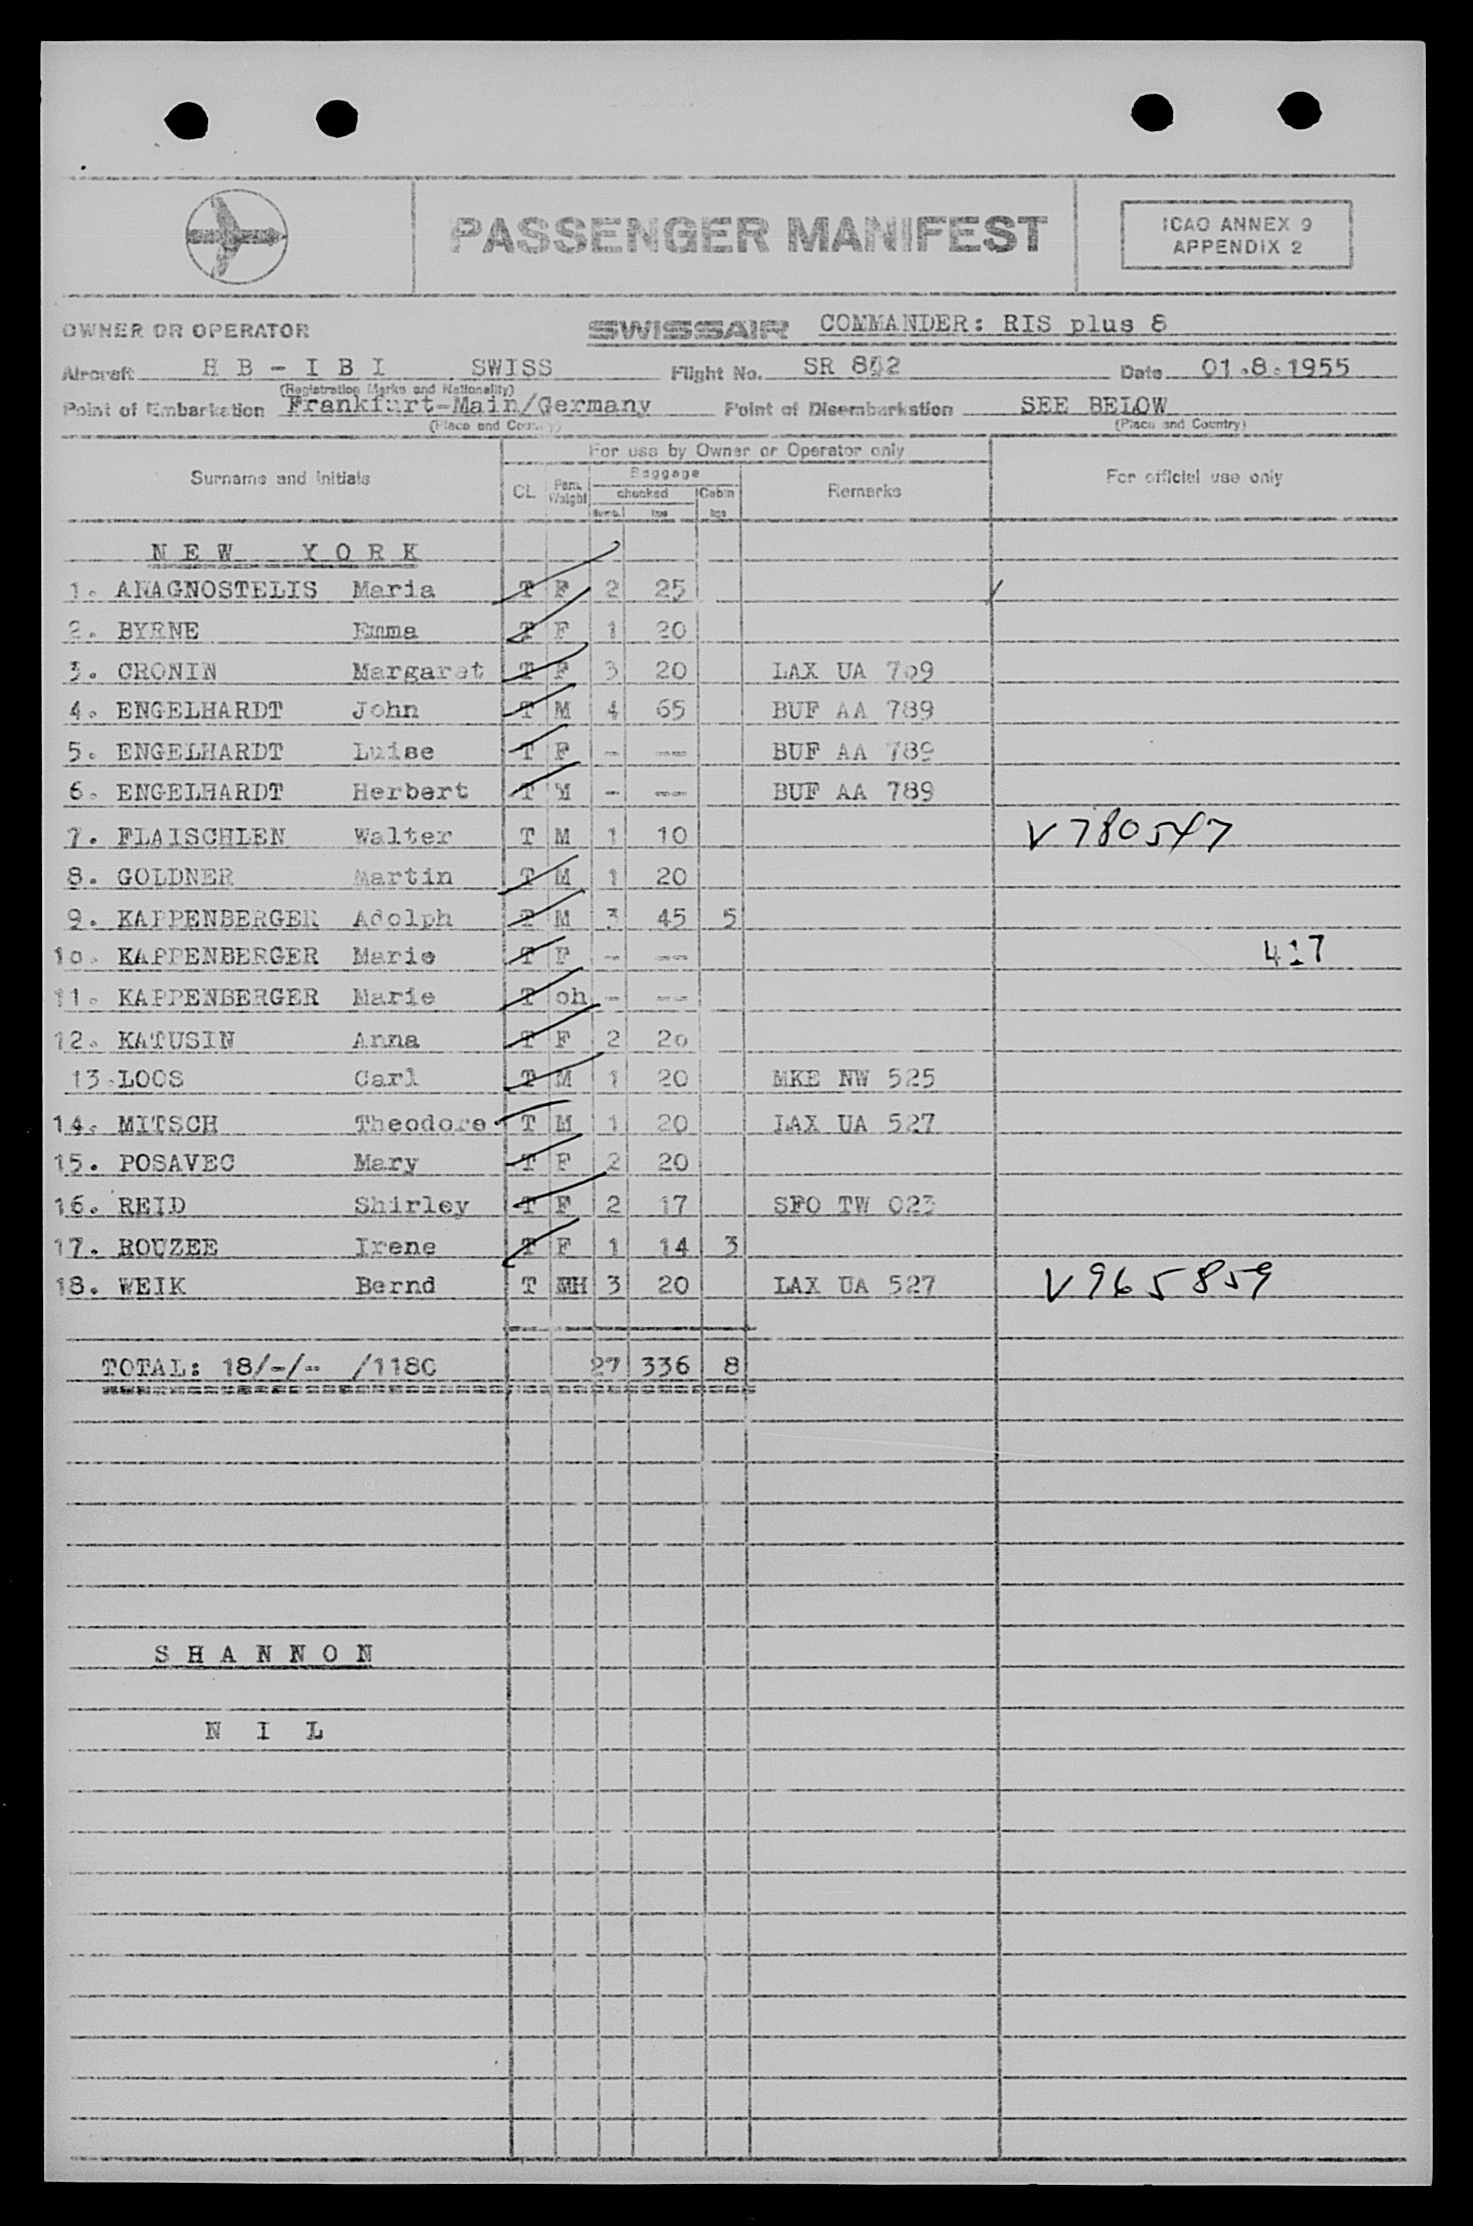 PASSENGER MANIFEST
ICAO ANNEX 9
APPENDIX 2
OWNER OR OPERATOR SWISSAIR COMMANDER: RIS plus 8
Aircraft H B - I B I SWISS Flight No. SR 802 Date 01.8.1955
(Registration Marks and Nationality)
Point of Embarkation Frankfurt-Main/Germany Point of Disembarkation SEE BELOW
(Place and Country) (Place and Country)
For use by Owner or Operator only
Surname and initials CL Pass. Weight Baggage Remarks For official use only
checked Cabin
Numb. kgs kgs
N E W Y O R K
1. ANAGNOSTELIS Maria T F 2 25
2. BYRNE Emma T F 1 20
3. CRONIN Margaret T F 3 20 LAX UA 709
4. ENGELHARDT John T M 4 65 BUF AA 789
5. ENGELHARDT Luise T F - -- BUF AA 789
6. ENGELHARDT Herbert T M - -- BUF AA 789
7. FLAISCHLEN Walter T M 1 10 V780547
8. GOLDNER Martin T M 1 20
9. KAPPENBERGER Adolph T M 3 45 5
10. KAPPENBERGER Marie T F - -- 417
11. KAPPENBERGER Marie T ch - --
12. KATUSIN Anna T F 2 20
13. LOOS Carl T M 1 20 MKE NW 525
14. MITSCH Theodore T M 1 20 LAX UA 527
15. POSAVEC Mary T F 2 20
16. REID Shirley T F 2 17 SFO TW 023
17. ROUZEE Irene T F 1 14 3
18. WEIK Bernd T MH 3 20 LAX UA 527 V965859
TOTAL: 18/-/-- /1180 27 336 8
S H A N N O N
N I L